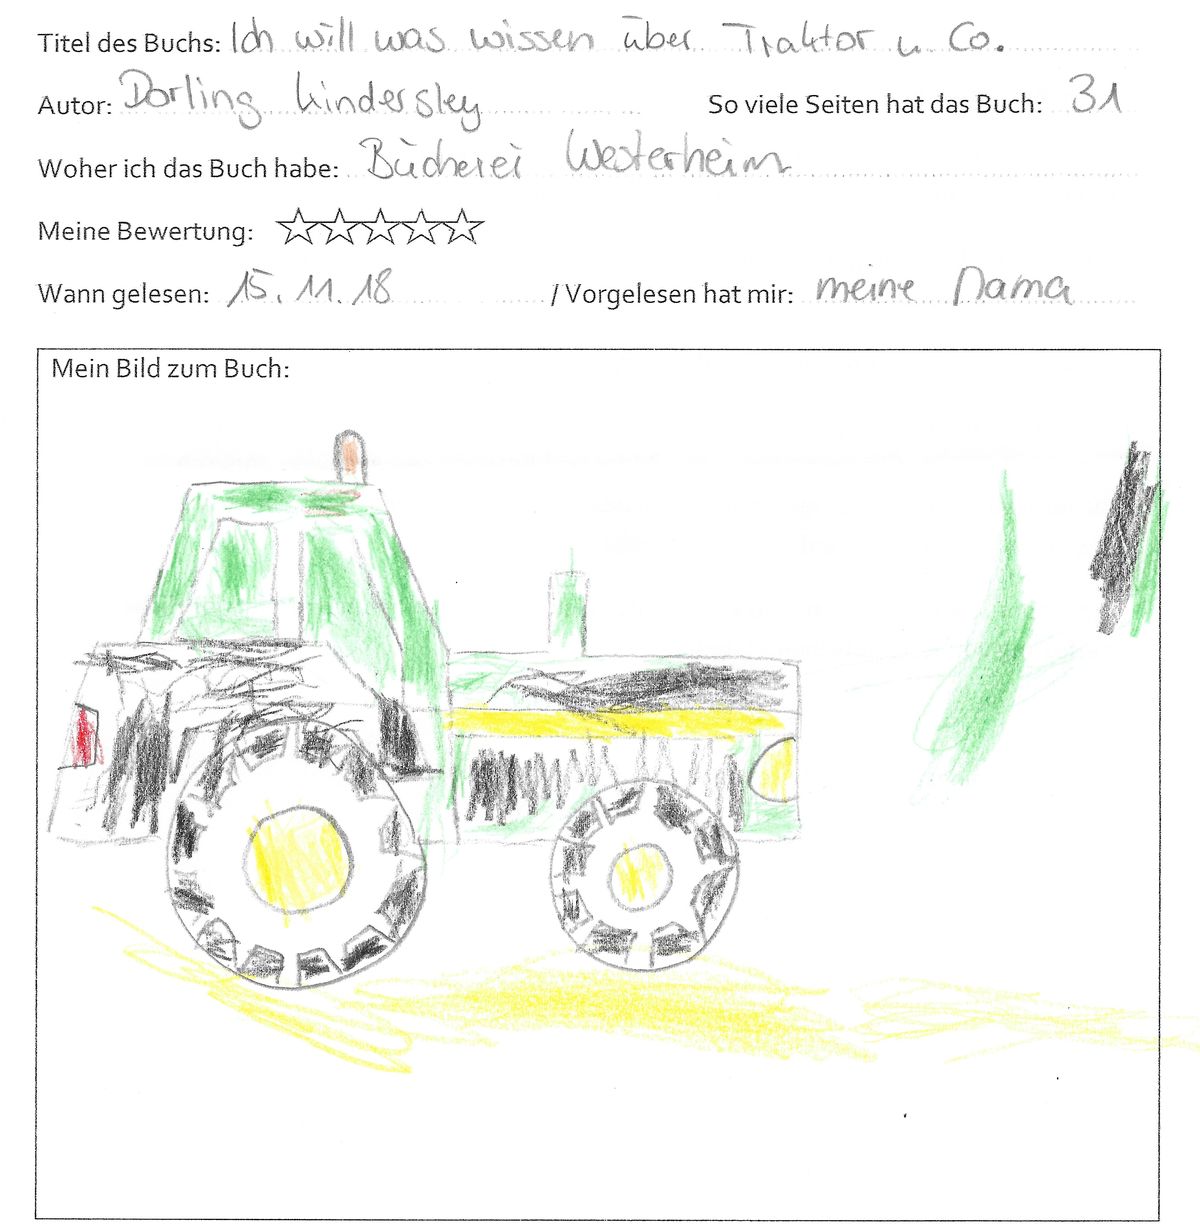 Titel des Buchs: Ich will was wissen über Traktor u Co.
Autor: Dorling Kindersley So viele Seiten hat das Buch: 31
Woher ich das Buch habe: Bücherei Westerheim
Meine Bewertung:
Wann gelesen: 15.11.18 / Vorgelesen hat mir: meine Mama
Mein Bild zum Buch: